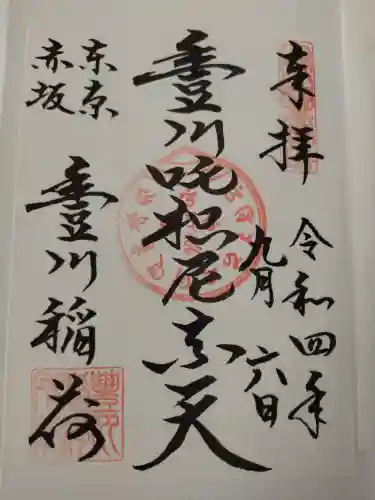 奉拝
令和四年
九月
六日
豊川吒枳尼真天
東京
赤坂
豊川稲荷